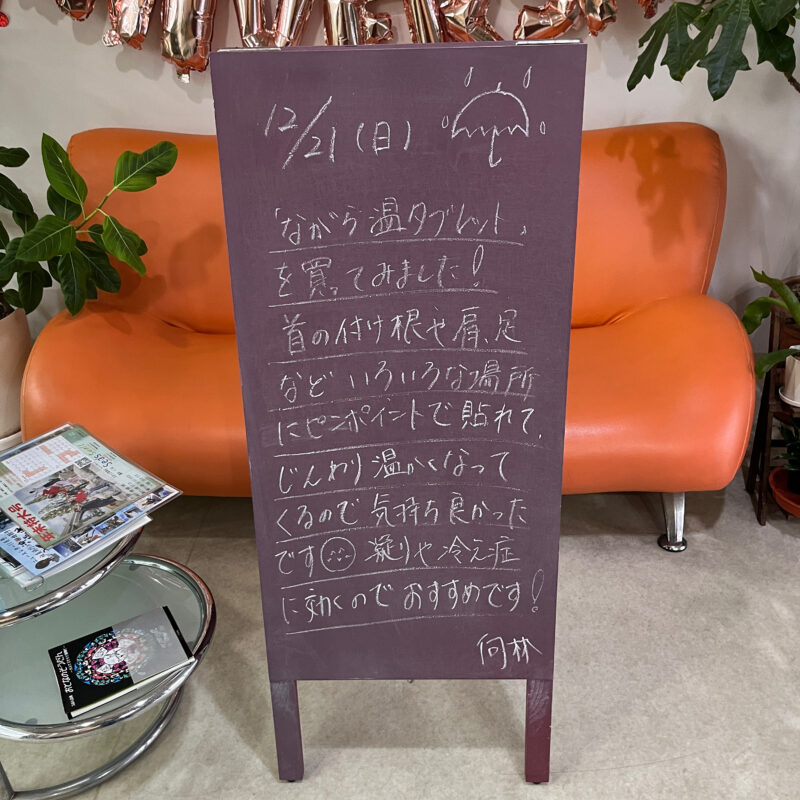 12/21(日)
「ながら温タブレット」
を買ってみました!
首の付け根や肩、足
などいろいろな場所
にピンポイントで貼れて、
じんわり温かくなって
くるので気持ち良かった
です 凝りや冷え症
に効くのでおすすめです!
何林